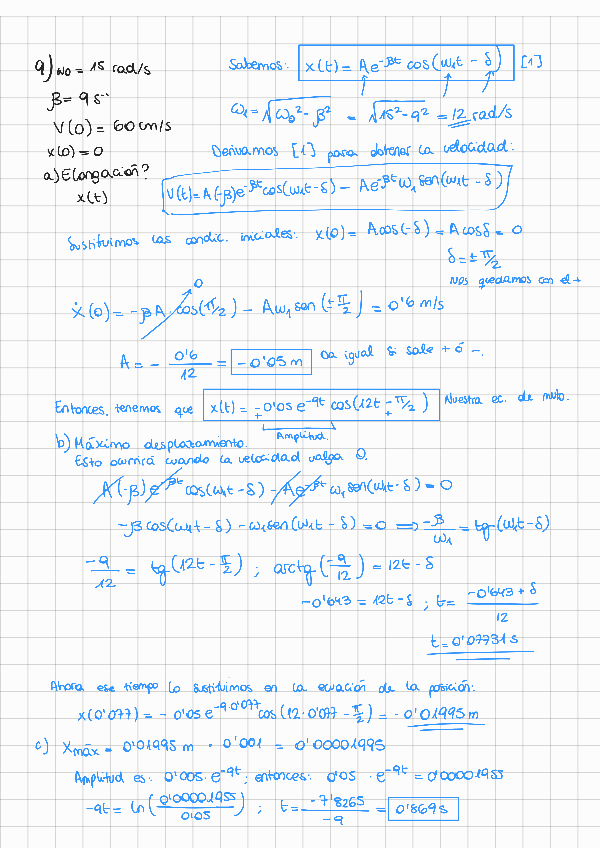 9) ω0 = 15 rad/s
β = 9 s⁻¹
V(0) = 60 cm/s
x(0) = 0
a) Elongación?
x(t)
Sabemos: x(t) = Ae^-βt cos(ω1t - δ) [1]
ω1 = √(ω0² - β²) = √(15² - 9²) = 12 rad/s
Derivamos [1] para obtener la velocidad:
V(t) = A(-β)e^-βt cos(ω1t - δ) - Ae^-βt ω1 sen(ω1t - δ)
Sustituimos las condic. iniciales: x(0) = A cos(-δ) = A cos δ = 0
δ = ± π/2
Nos quedamos con el +
0
ẋ(0) = -βA cos(π/2) - Aω1 sen(± π/2) = 0'6 m/s
A = - 0'6/12 = -0'05 m Da igual si sale + ó -.
Entonces, tenemos que x(t) = ∓0'05 e^-9t cos(12t ∓ π/2) Nuestra ec. de mvto.
Amplitud.
b) Máximo desplazamiento.
Esto ocurrirá cuando la velocidad valga 0.
A(-β)e^-βt cos(ω1t - δ) - Ae^-βt ω1 sen(ω1t - δ) = 0
-β cos(ω1t - δ) - ω1 sen(ω1t - δ) = 0 ⟹ -β/ω1 = tg(ω1t - δ)
-9/12 = tg(12t - π/2) ; arctg(-9/12) = 12t - δ
-0'643 = 12t - δ ; t = (-0'643 + δ)/12
t = 0'07731 s
Ahora ese tiempo lo sustituimos en la ecuación de la posición:
x(0'077) = -0'05 e^-9·0'077 cos(12·0'077 - π/2) = -0'01995 m
c) Xmáx = 0'01995 m · 0'001 = 0'00001995
Amplitud es: 0'005·e^-9t; entonces: 0'05 · e^-9t = 0'00001955
-9t = ln(0'00001955/0'05) ; t = -7'8265/-9 = 0'869 s